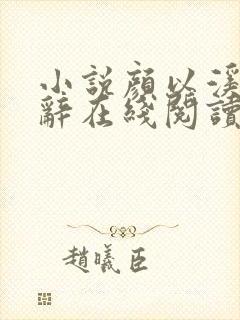 小說顏以溪
辭在綫閱讀
趙曦臣